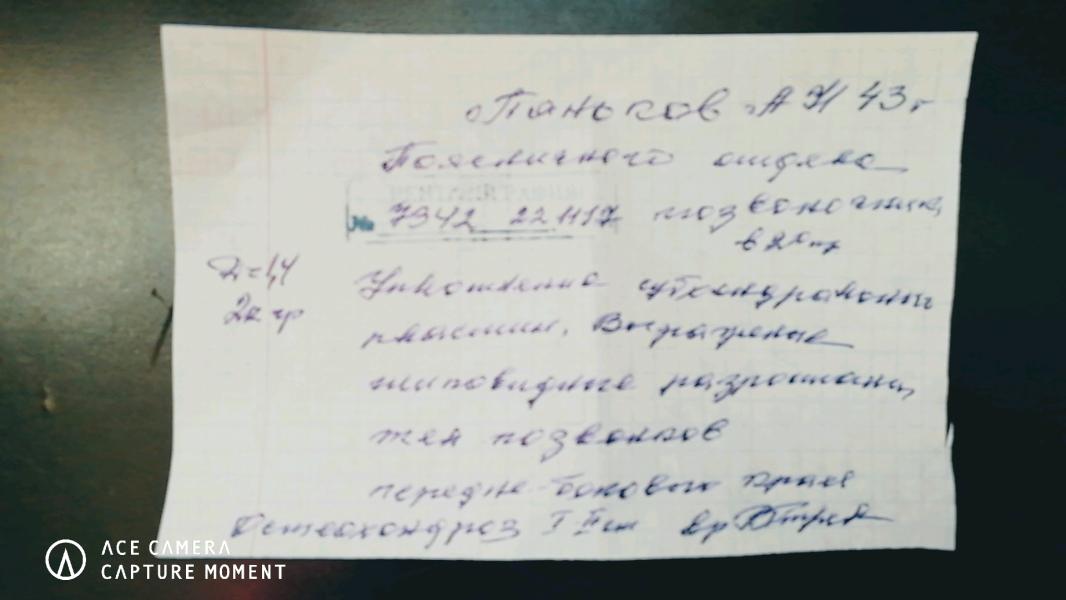 Паньков А Н 43 г
Поясничного отдела
№ 7942 22 11 17 позвоночника
в 2х пр
Д=1,4
2к гр
Уплотнение субхондральных
пластин. Выраженные
шиповидные разрастания
тел позвонков
передне-боковых краев
Остеохондроз I II ст вр
ACE CAMERA
CAPTURE MOMENT